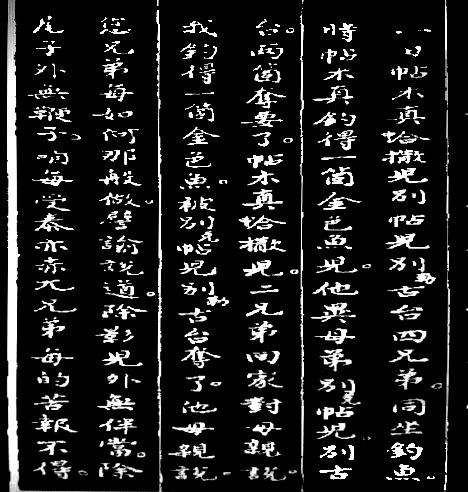 一日帖木真中合撒兒別帖兒別勒古台四兄弟。同坐釣魚。
時帖木真釣得一箇金色魚兒。他異母弟別克帖兒別古
台。兩箇奪要了。帖木真中合撒兒。二兄弟回家對母親說。
我釣得一箇金色魚。被別克帖兒別勒古台奪了。他母親說。
您兄弟每如何那般做。譬喻說道。除影兒外無伴當。除
尾子外無鞭子。咱每受泰亦赤兀兄弟每的苦報不得。